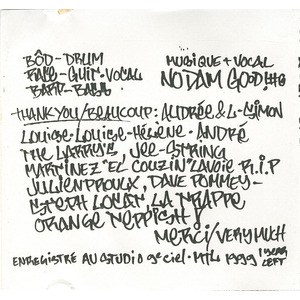 BÔD - DRUM
RALF - GUIT - VOCAL
BARR - BASS
MUSIQUE + VOCAL
NO DAM GOOD!#@
THANK YOU/BEAUCOUP: AUDRÉE & L-SIMON
LOUISE-LOUISE-HÉLÈNE-ANDRÉ
THE LARRY'S, JEE-STRING
MARTINEZ "EL COUZIN" LAVOIE R.I.P
JULIEN PROULX, DAVE POMMEY-
STEPH LOCAT, LA TRAPPE
ORANGE
MERCI/VERY MUCH
ENREGISTRÉ AU STUDIO 9e CIEL - MTL 1999
1 YEAR
LEFT